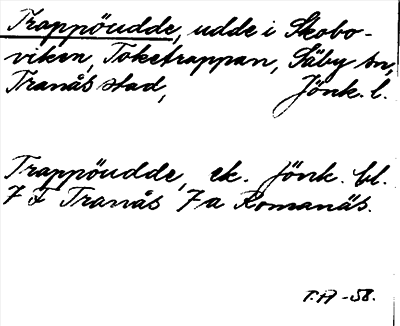 Trappöudde, udde i Skobo-
viken, Toketrappan, Säby sn,
Tranås stad, Jönk. l.
Trappöudde, ek. Jönk. bl.
7 F Tranås 7a Romanäs.
T.A -58.